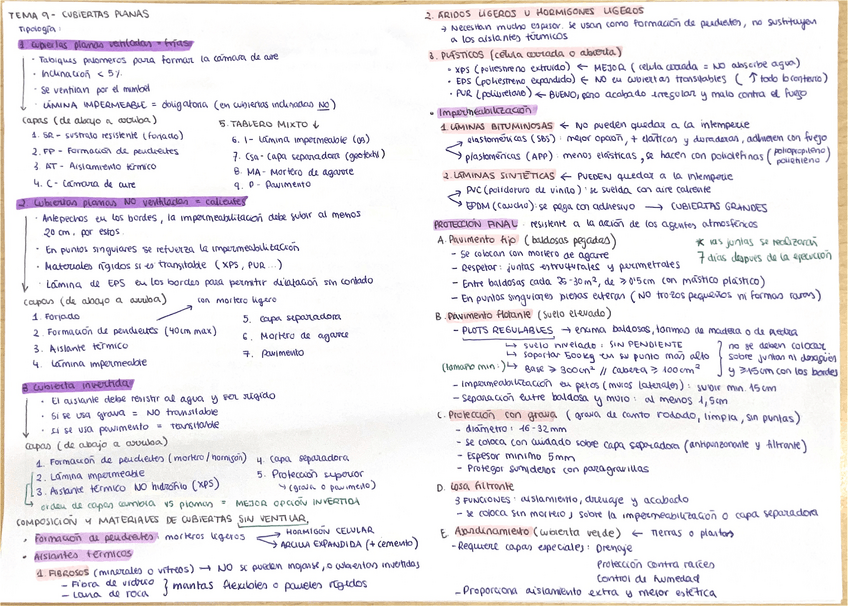 TEMA 9 - CUBIERTAS PLANAS
Tipología:
1 Cubiertas planas ventiladas = frías
· Tabiques palomeros para formar la cámara de aire
· Inclinación < 5%
· Se ventilan por el
· LÁMINA IMPERMEABLE = obligatoria (en cubiertas inclinadas NO)
Capas (de abajo a arriba)
1. SR - sustrato resistente (forjado)
2. FP - Formación de pendientes
3. AT - Aislamiento térmico
4. C - Cámara de aire
5. TABLERO MIXTO ↓
6. I - Lámina impermeable
7. Csa - Capa separadora (geotextil)
8. MA - Mortero de agarre
9. P - Pavimento
2 Cubiertas planas NO ventiladas = calientes
· Antepechos en los bordes, la impermeabilización debe subir al menos
20cm. por estos.
· En puntos singulares se refuerza la impermeabilización
· Materiales rígidos si es transitable (XPS, PUR...)
· Lámina de EPS en los bordes para permitir dilatación sin contado
capas (de abajo a arriba)
con mortero ligero
1. Forjado
2. Formación de pendientes (40cm max)
3. Aislante térmico
4. Lámina impermeable
5. Capa separadora
6. Mortero de agarre
7. Pavimento
3 Cubierta invertida
· El aislante debe resistir al agua y ser rígido
· Si se usa grava = NO transitable
· Si se usa pavimento = transitable
capas (de abajo a arriba)
1. Formación de pendientes (mortero/hormigón)
2. Lámina impermeable
3. Aislante térmico NO hidrófilo (XPS)
4. Capa separadora
5. Protección superior
↳ (grava o pavimento)
↳ orden de capas cambia vs planas = MEJOR OPCIÓN INVERTIDA
COMPOSICIÓN Y MATERIALES DE CUBIERTAS SIN VENTILAR,
· Formación de pendientes: morteros ligeros
HORMIGÓN CELULAR
ARCILLA EXPANDIDA (+ cemento)
· Aislantes térmicos
1. FIBROSOS (minerales o vítreos) → NO se pueden mojarse, o cubiertas invertidas
- Fibra de vidrio
- Lana de roca
} mantas flexibles o paneles rígidos
2. ÁRIDOS LIGEROS U HORMIGONES LIGEROS
→ Necesitan mucho espesor. se usan como formación de pendientes, no sustituyen
a los aislantes térmicos
3. PLÁSTICOS (célula cerrada o abierta)
· XPS (poliestireno extruido) ← MEJOR (célula cerrada = NO absorbe agua)
· EPS (poliestireno expandido) ← NO en cubiertas transitables (↑ todo lo contrario)
· PUR (poliuretano) ← BUENO, pero acabado irregular y malo contra el fuego
· Impermeabilización
1. LÁMINAS BITUMINOSAS ← NO pueden quedar a la intemperie
elastoméricas (SBS): mejor opción, + elásticas y duraderas, adhieren con fuego
plastoméricas (APP): menos elásticas, se hacen con poliolefinas (polipropileno
polietileno)
2. LÁMINAS SINTÉTICAS ← PUEDEN quedar a la intemperie
PVC (policloruro de vinilo): se suelda con aire caliente
EPDM (caucho): se pega con adhesivo → CUBIERTAS GRANDES
PROTECCIÓN FINAL: resistente a la acción de los agentes atmosféricos
A. Pavimento fijo (baldosas pegadas)
- Se colocan con mortero de agarre
- Respetar: juntas estructurales y perimetrales
- Entre baldosas cada 25-30m², de ≥ 0'5cm con mástico plástico)
- En puntos singulares piezas enteras (NO trozos pequeños ni formas raras)
* las juntas se realizarán
7 días después de la ejecución
B. Pavimento flotante (suelo elevado)
- PLOTS REGULABLES → encima baldosas, lamas de madera o de piedra
↳ suelo nivelado: SIN PENDIENTE
↳ soportar 500kg en su punto más alto
(tamaño min:) ↳ Base ≥ 300cm² // Cabeza ≥ 100cm²
} no se deben colocar
sobre juntas ni desagües
y ≥15cm con los bordes
- Impermeabilización en petos (muros laterales): subir min. 15cm
- Separación entre baldosa y muro: al menos 1,5cm
C. Protección con grava (grava de canto rodado, limpia, sin puntas)
- diámetro: 16-32mm
- Se coloca con cuidado sobre capa separadora (antipunzonante y filtrante)
- Espesor mínimo 5mm
- Proteger sumideros con paragravillas
D. Losa filtrante
3 FUNCIONES: aislamiento, drenaje y acabado
- Se coloca sin mortero, sobre la impermeabilización o capa separadora
E. Ajardinamiento (cubierta verde) ← tierras o plantas
- Requiere capas especiales: Drenaje
Protección contra raíces
Control de humedad
- Proporciona aislamiento extra y mejor estética